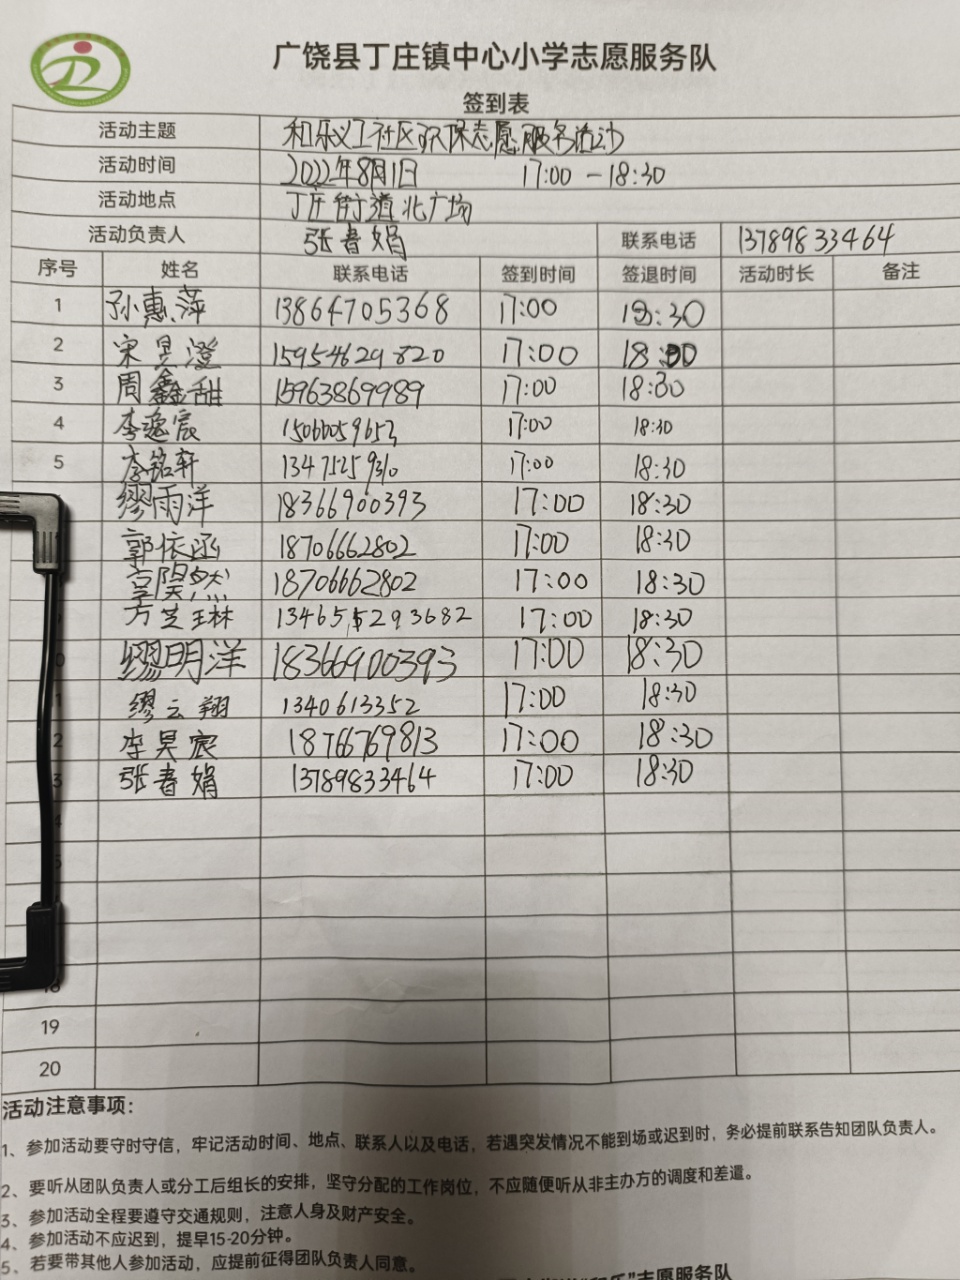 广饶县丁庄镇中心小学志愿服务队
签到表
活动主题 和乐义工社区环保志愿服务活动
活动时间 2022年8月1日 17:00-18:30
活动地点 丁庄街道北广场
活动负责人 张春娟 联系电话 13789833464
序号 姓名 联系电话 签到时间 签退时间 活动时长 备注
1 孙惠萍 13864705368 17:00 18:30
2 宋昊澄 15954629820 17:00 18:30
3 周鑫甜 15963869989 17:00 18:30
4 李逸宸 15066059653 17:00 18:30
5 李铭轩 13475259310 17:00 18:30
缪雨洋 18366900393 17:00 18:30
郭依函 18706662802 17:00 18:30
18706662802 17:00 18:30
方芝琳 13465293682 17:00 18:30
0 缪明洋 18366900393 17:00 18:30
1 缪云翔 1340613352 17:00 18:30
2 李昊宸 18766769813 17:00 18:30
3 张春娟 13789833464 17:00 18:30
18
19
20
活动注意事项：
1、参加活动要守时守信，牢记活动时间、地点、联系人以及电话，若遇突发情况不能到场或迟到时，务必提前联系告知团队负责人。
2、要听从团队负责人或分工后组长的安排，坚守分配的工作岗位，不应随便听从非主办方的调度和差遣。
3、参加活动全程要遵守交通规则，注意人身及财产安全。
4、参加活动不应迟到，提早15-20分钟。
5、若要带其他人参加活动，应提前征得团队负责人同意。
“和乐”志愿服务队